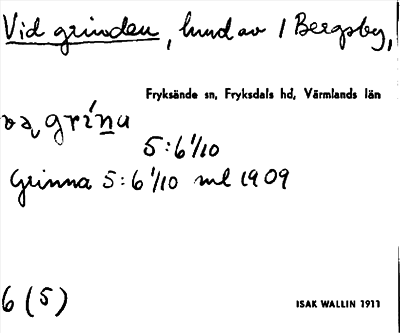 Vid grinden, hmd av 1 Bergsby,
Fryksände sn, Fryksdals hd, Värmlands län
va grína
5:6 1/10
Grinna 5:6 1/10 ml 1909
6 (5)
ISAK WALLIN 1911